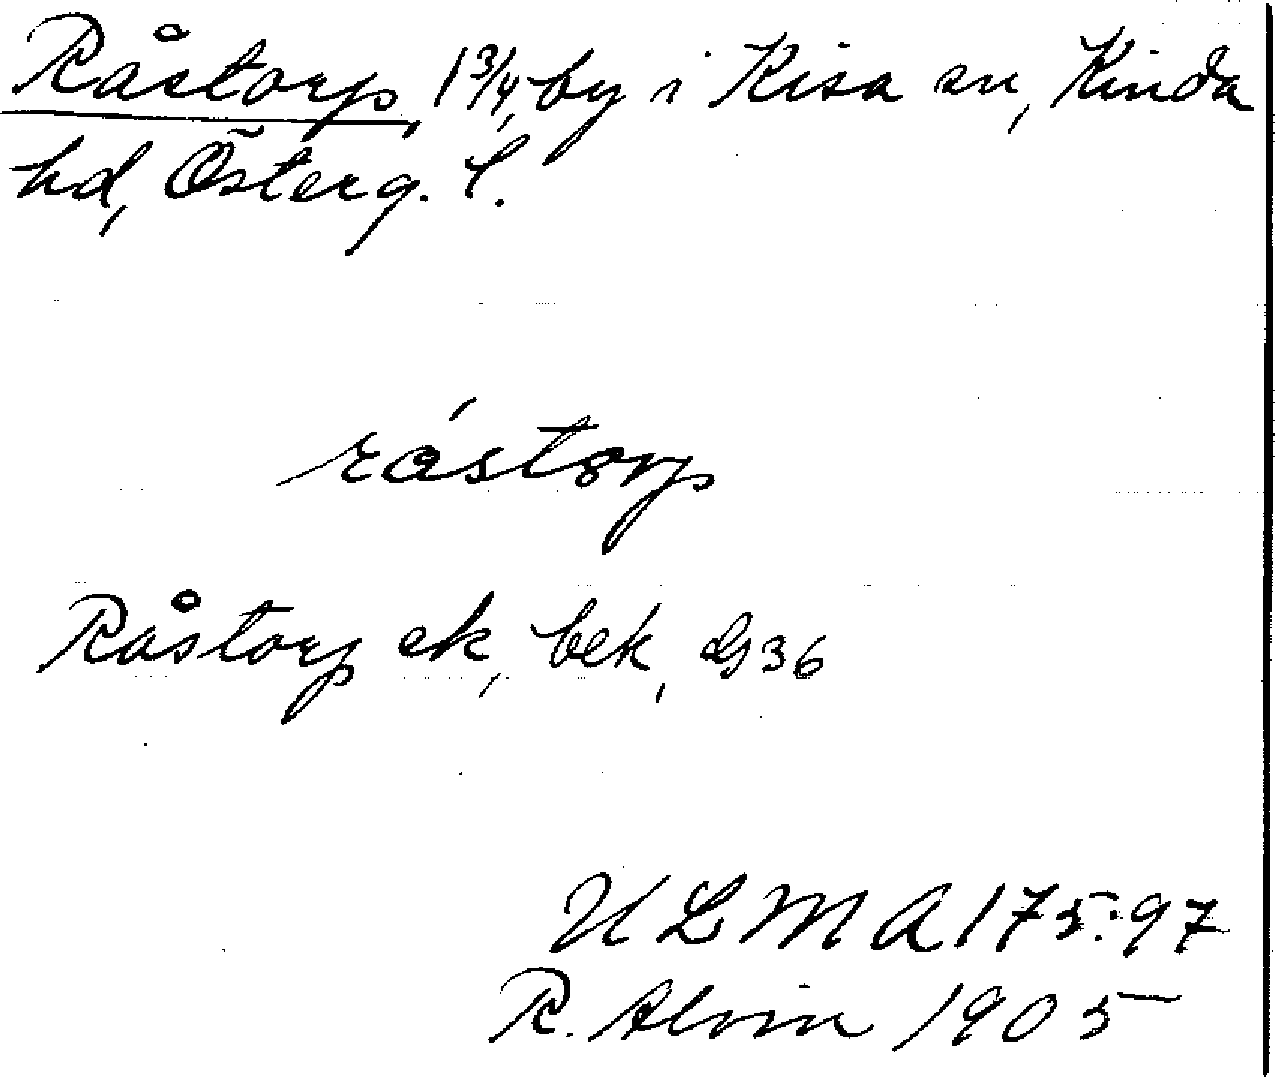 Råstorp, 1 3/4, by i Kisa sn, Kinda
hd, Österg. l.
råstorp
Råstorp ek, bek, G36
ULMA 175:97
R. Alvin 1905